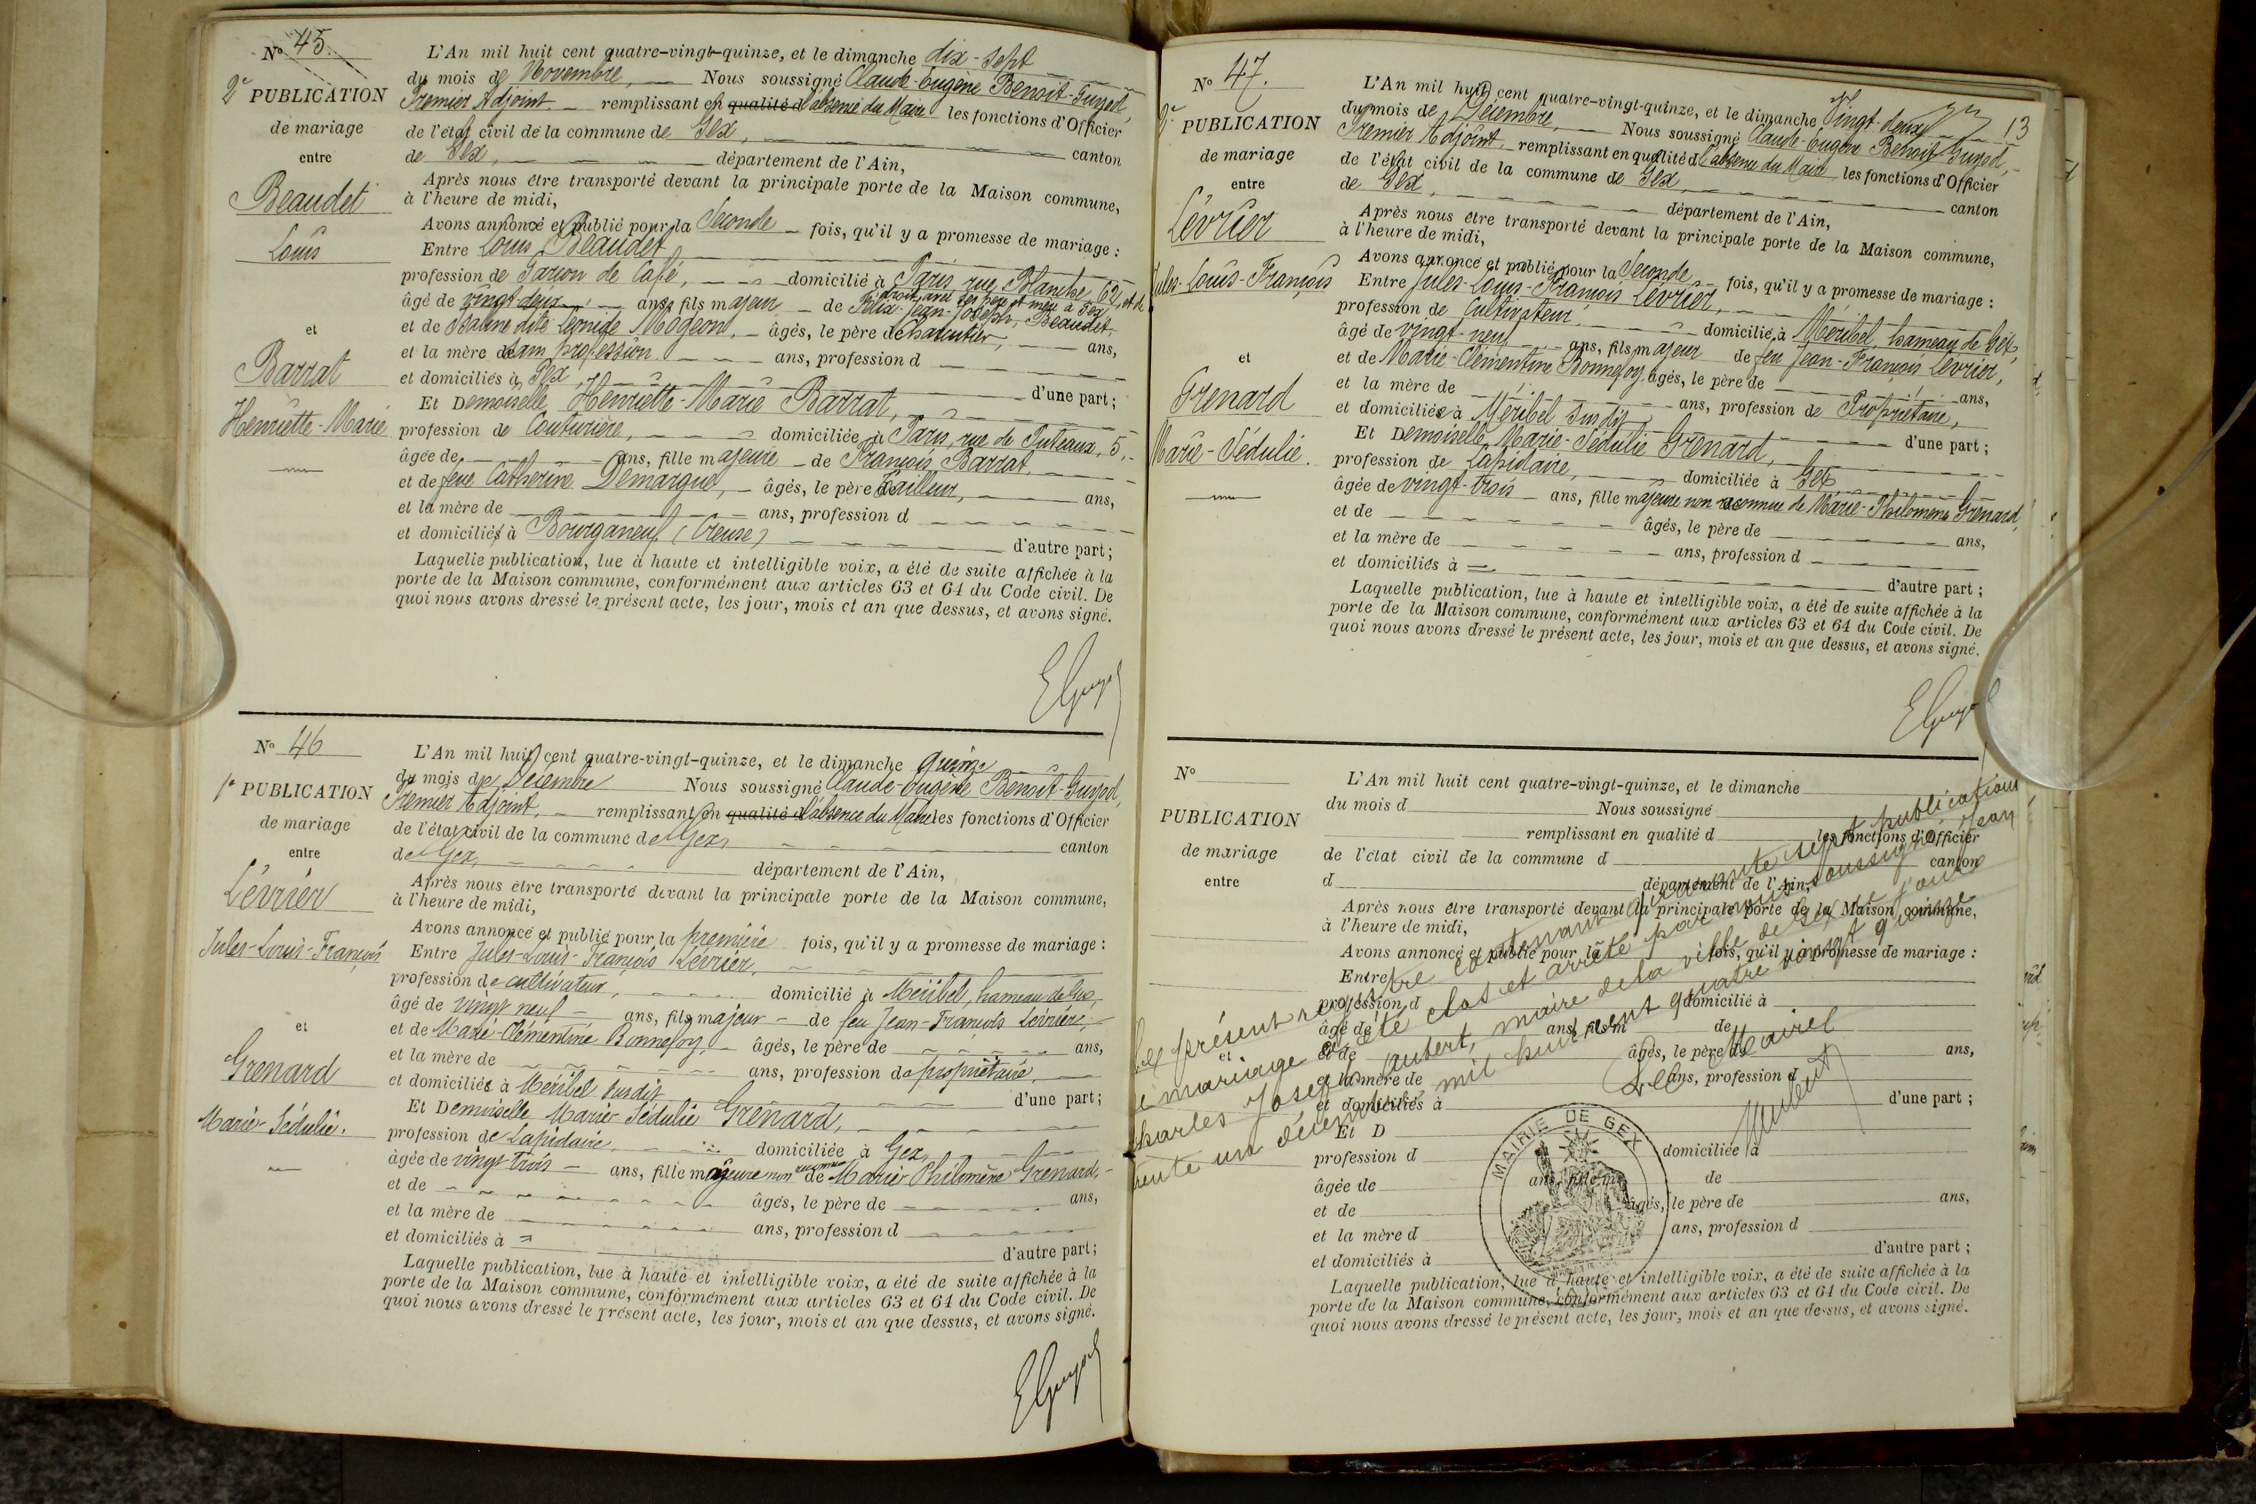 Nº 45.
2e PUBLICATION
de mariage
entre
Beaudet
Louis
et
Barrat
Henriette-Marie
L'An mil huit cent quatre-vingt-quinze, et le dimanche dix-sept
du mois de Novembre, Nous soussigné Claude-Eugène Benoit-Guyod,
Premier Adjoint remplissant en qualité d l'absence du Maire les fonctions d'Officier
de l'état civil de la commune de Gex, canton
de Gex, département de l'Ain,
Après nous être transporté devant la principale porte de la Maison commune,
à l'heure de midi,
Avons annoncé et publié pour la Seconde fois, qu'il y a promesse de mariage :
Entre Louis Beaudet,
profession de Garçon de Café, domicilié à Paris, rue Blanche 62, et de
droit, avec ses père et mère à Gex,
âgé de vingt-deux ans, fils majeur de Félix-Jean-Joseph, Beaudet
et de Balline dite Léonide Mogeon, âgés, le père de Charcutier, ans,
et la mère de sans profession ans, profession d
et domiciliés à Gex, d'une part ;
Et Demoiselle Henriette-Marie Barrat,
profession de Couturière, domiciliée à Paris, rue de Puteaux, 5,
âgée de ans, fille majeure de François Barrat,
et de feue Catherine Demargue, âgés, le père de tailleur, ans,
et la mère de ans, profession d
et domiciliés à Bourganeuf (Creuse) d'autre part ;
Laquelle publication, lue à haute et intelligible voix, a été de suite affichée à la
porte de la Maison commune, conformément aux articles 63 et 64 du Code civil. De
quoi nous avons dressé le présent acte, les jour, mois et an que dessus, et avons signé.
EGuyod
Nº 46
1e PUBLICATION
de mariage
entre
Lévrier
Jules-Louis-François
et
Grenard
Marie-Sédulie.
L'An mil huit cent quatre-vingt-quinze, et le dimanche quinze
du mois de Décembre Nous soussigné Claude-Eugène Benoit-Guyod,
Premier Adjoint, remplissant en qualité d l'absence du Maire les fonctions d'Officier
de l'état civil de la commune de Gex, canton
de Gex, département de l'Ain,
Après nous être transporté devant la principale porte de la Maison commune,
à l'heure de midi,
Avons annoncé et publié pour la première fois, qu'il y a promesse de mariage :
Entre Jules-Louis-François Lévrier,
profession de cultivateur, domicilié à Méribel, hameau de Gex,
âgé de vingt neuf ans, fils majeur de feu Jean-François Lévrier,
et de Marie-Clémentine Bonnefoy, âgés, le père de ans,
et la mère de ans, profession de propriétaire,
et domiciliés à Méribel susdit d'une part ;
Et Demoiselle Marie-Sédulie Grenard,
profession de Lapidaire, domiciliée à Gex,
âgée de vingt trois ans, fille majeure non reconnue de Marie Philomène Grenard,
et de âgés, le père de ans,
et la mère de ans, profession d
et domiciliés à d'autre part ;
Laquelle publication, lue à haute et intelligible voix, a été de suite affichée à la
porte de la Maison commune, conformément aux articles 63 et 64 du Code civil. De
quoi nous avons dressé le présent acte, les jour, mois et an que dessus, et avons signé.
EGuyod
13
Nº 47.
2e PUBLICATION
de mariage
entre
Lévrier
Jules-Louis-François
et
Grenard
Marie-Sédulie.
L'An mil huit cent quatre-vingt-quinze, et le dimanche Vingt-deux
du mois de Décembre, Nous soussigné Claude-Eugène Benoit-Guyod,
Premier Adjoint, remplissant en qualité d l'absence du Maire les fonctions d'Officier
de l'état civil de la commune de Gex, canton
de Gex, département de l'Ain,
Après nous être transporté devant la principale porte de la Maison commune,
à l'heure de midi,
Avons annoncé et publié pour la Seconde fois, qu'il y a promesse de mariage :
Entre Jules-Louis-François Lévrier,
profession de Cultivateur, domicilié à Méribel, hameau de Gex,
âgé de vingt-neuf ans, fils majeur de feu Jean-François Lévrier,
et de Marie-Clémentine Bonnefoy, âgés, le père de ans,
et la mère de ans, profession de Propriétaire,
et domiciliés à Méribel susdit d'une part ;
Et Demoiselle Marie-Sédulie Grenard,
profession de Lapidaire, domiciliée à Gex
âgée de vingt-trois ans, fille majeure non reconnue de Marie-Philomène Grenard,
et de âgés, le père de ans,
et la mère de ans, profession d
et domiciliés à d'autre part ;
Laquelle publication, lue à haute et intelligible voix, a été de suite affichée à la
porte de la Maison commune, conformément aux articles 63 et 64 du Code civil. De
quoi nous avons dressé le présent acte, les jour, mois et an que dessus, et avons signé.
EGuyod
Nº
PUBLICATION
de mariage
entre
et
L'An mil huit cent quatre-vingt-quinze, et le dimanche
du mois d Nous soussigné
remplissant en qualité d les fonctions d'Officier
de l'état civil de la commune d canton
d département de l'Ain,
Après nous être transporté devant la principale porte de la Maison commune,
à l'heure de midi,
Avons annoncé et publié pour la fois, qu'il y a promesse de mariage :
Entre
profession d domicilié à
âgé de ans, fils m de
et de âgés, le père de ans,
et la mère de ans, profession d
et domiciliés à d'une part ;
Et D
profession d domiciliée à
âgée de ans, fille m de
et de âgés, le père de ans,
et la mère d ans, profession d
et domiciliés à d'autre part ;
Laquelle publication, lue à haute et intelligible voix, a été de suite affichée à la
porte de la Maison commune, conformément aux articles 63 et 64 du Code civil. De
quoi nous avons dressé le présent acte, les jour, mois et an que dessus, et avons signé.
Le présent registre contenant quarante sept publications
de mariage a été clos et arrêté par nous soussigné Jean
Charles Joseph Aubert, maire de la ville de Gex, le jour
trente un décembre mil huit cent quatre vingt quinze
Le Maire
Aubert
MAIRIE DE GEX